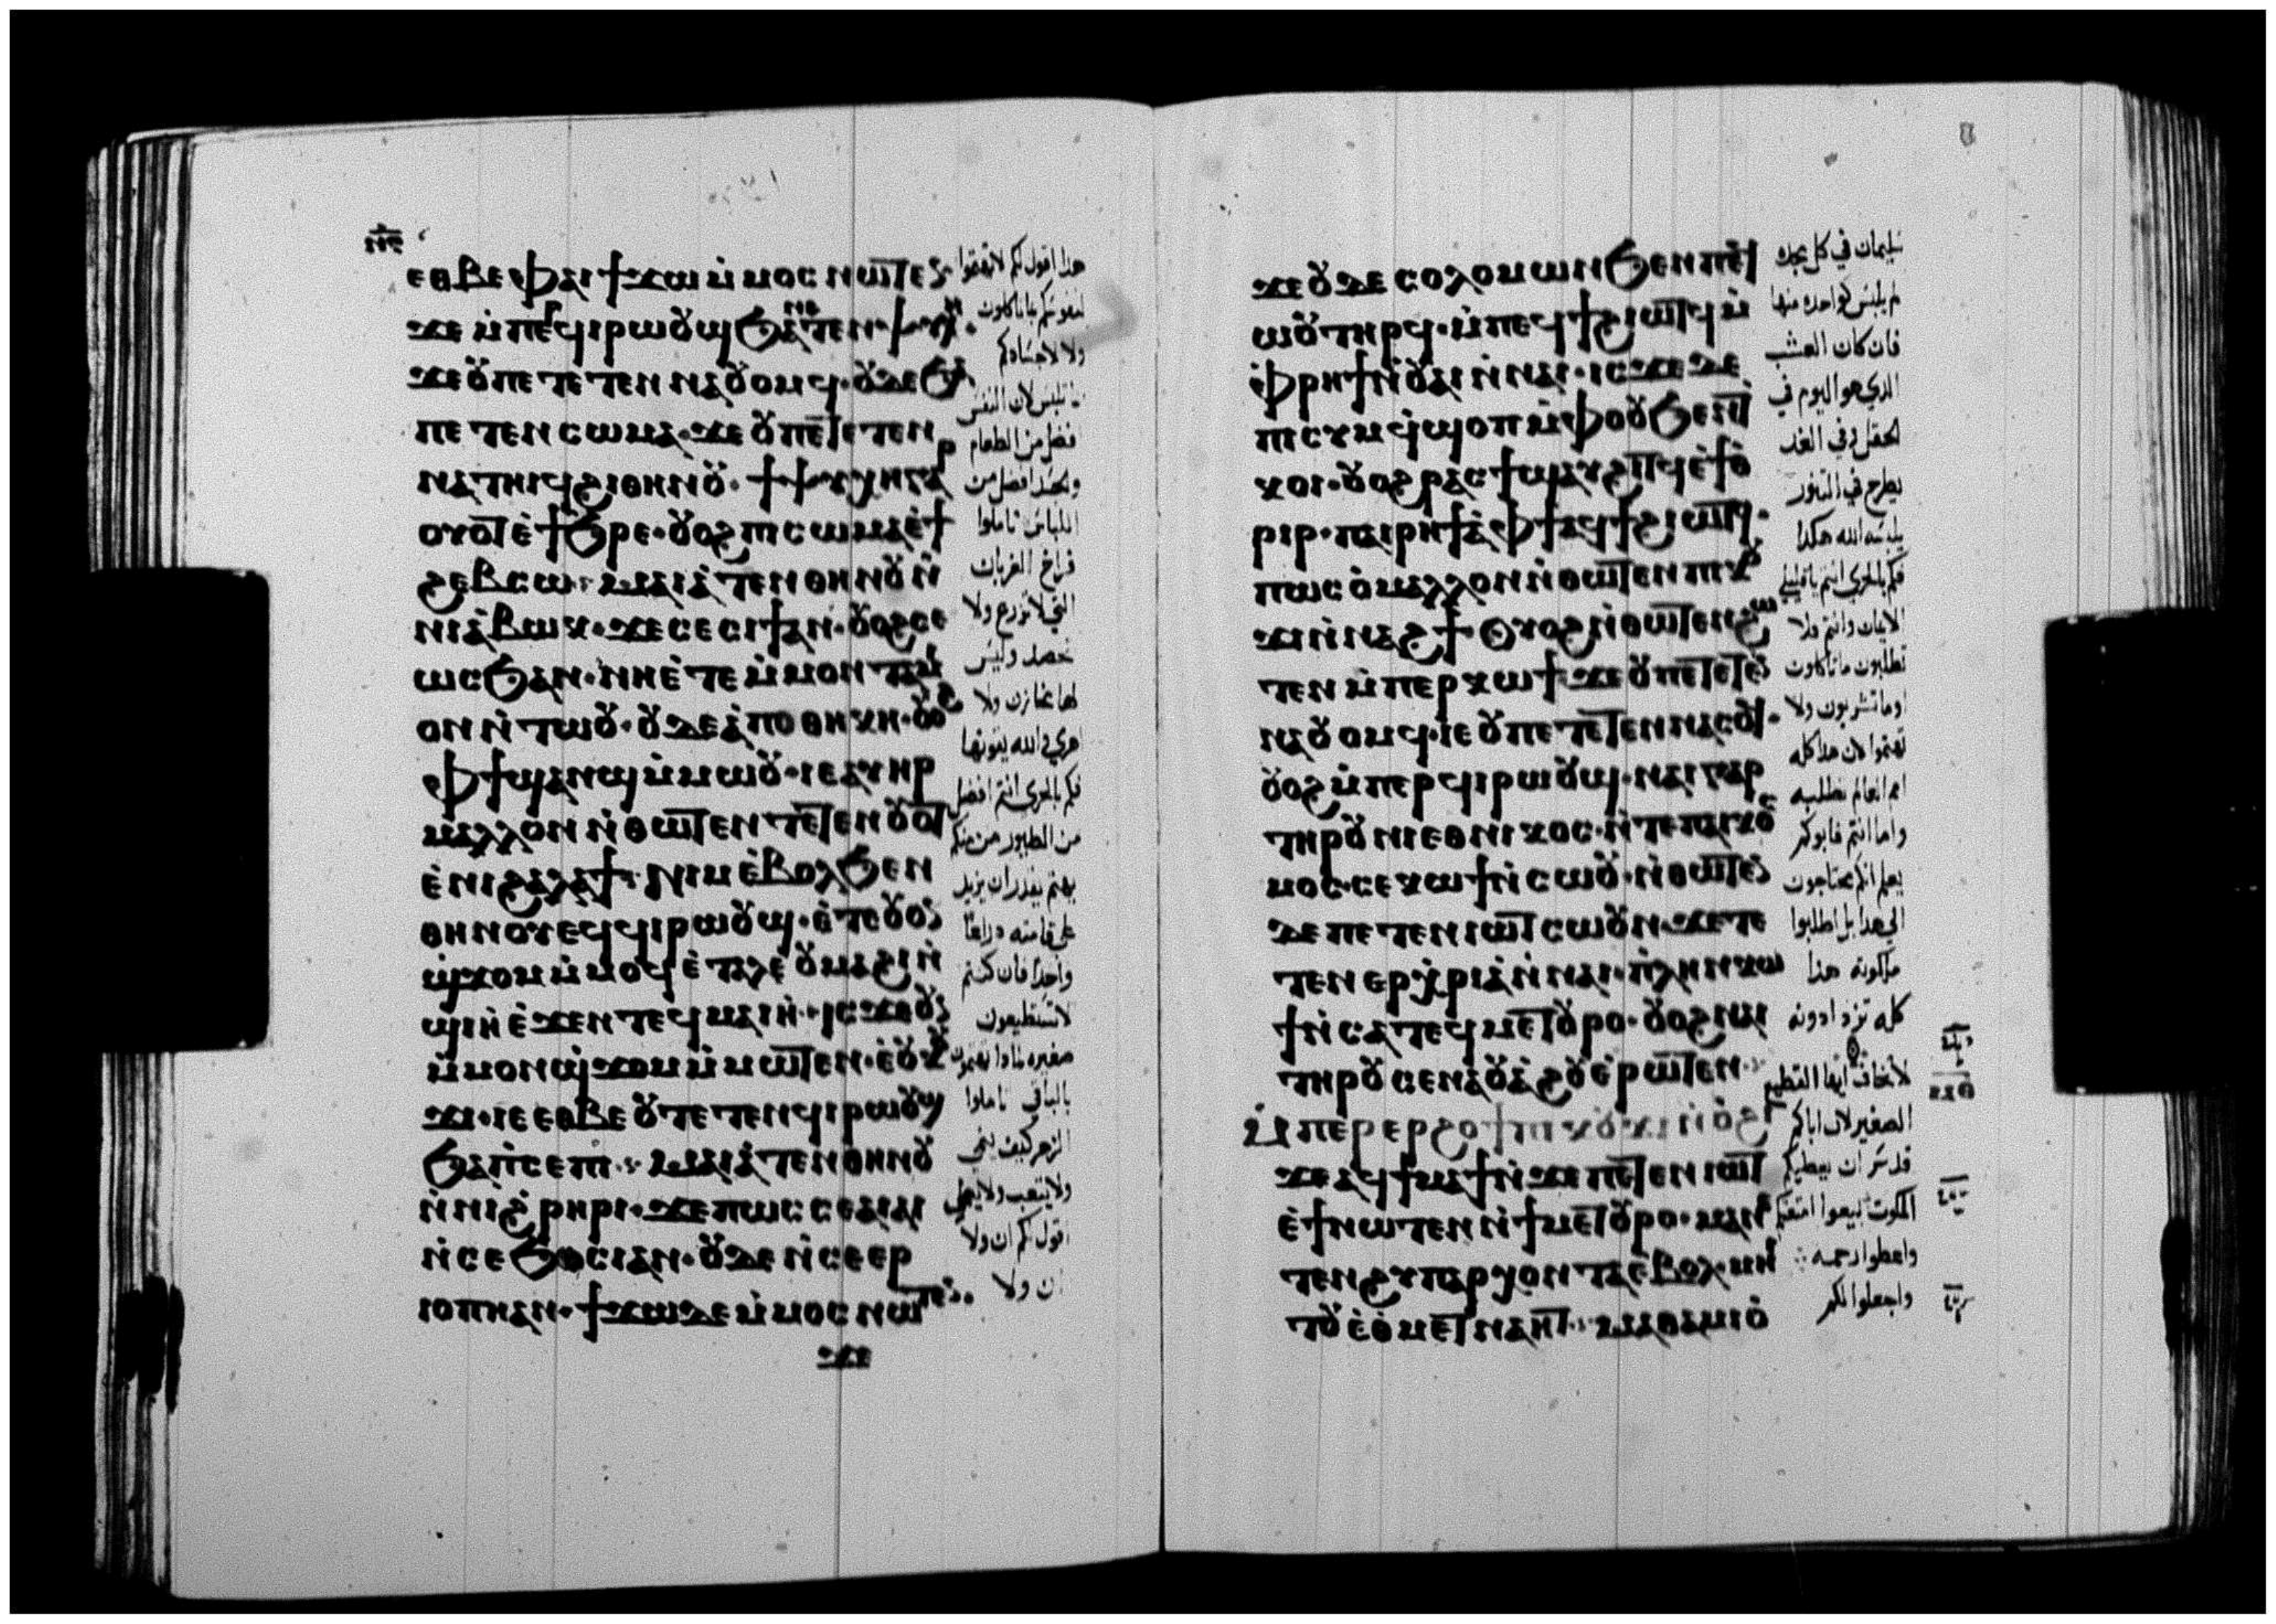 ⲛⲋ
ⲉⲑⲃⲉⲫⲁⲓϯϫⲱⲙ̀ⲙⲟⲥ ⲛⲱⲧⲉⲛ
ϫⲉ ⲙ̀ⲡⲉⲣϥⲓⲣⲱⲟⲩϣ ϧⲁⲧⲉⲛⲯⲩⲭⲏ
ϫⲉⲟⲩⲡⲉⲧⲉⲧⲉⲛⲛⲁⲟⲩⲟⲙϥ·ⲟⲩⲇⲉϧⲁ
ⲡⲉⲧⲉⲛⲥⲱⲙⲁ·ϫⲉⲟⲩⲡⲉⲧⲉⲧⲉⲛ
ⲛⲁⲧⲏⲓϥϩⲓⲑⲏⲛⲟⲩ·ϯⲯⲩⲭⲏⲅⲁⲣ
ⲟⲩⲟⲧⲉ̀ϯϧⲣⲉ·ⲟⲩⲟϩⲡⲓⲥⲱⲙⲁⲉ̀ϯ
ϩⲉⲃⲥⲱ·ⲙⲁⲓⲁ̀ⲧⲉⲛⲑⲏⲛⲟⲩⲛ̀
ⲛⲓⲁ̀ⲃⲱⲕ·ϫⲉⲥⲉⲥⲓϯⲁⲛ·ⲟⲩⲟϩⲥⲉ
ⲱⲥϧⲁⲛ·ⲛⲏⲉ̀ⲧⲉⲙ̀ⲙⲟⲛⲧⲁⲙ
ⲟⲛⲛ̀ⲧⲱⲟⲩ·ⲟⲩⲇⲉⲁ̀ⲡⲟⲑⲏⲕⲏ·ⲟⲩⲟϩ
ⲫϯϣⲁⲛϣⲙ̀ⲙⲱⲟⲩ·ⲓⲉⲁⲩⲏⲣ
ⲙⲁⲗⲗⲟⲛⲛ̀ⲑⲱⲧⲉⲛⲧⲉⲧⲉⲛⲟⲩⲟⲧ
ⲉ̀ⲛⲓϩⲁⲗⲁϯ·ⲛⲓⲙⲉ̀ⲃⲟⲗϧⲉⲛ
ⲑⲏⲛⲟⲩⲉϥϥⲓⲣⲱⲟⲩϣ·ⲉ̀ⲧⲉⲟⲩⲟⲛ
ϣϫⲟⲙⲙ̀ⲙⲟϥⲉ̀ⲧⲁⲗⲉⲟⲩⲙⲁϩⲓⲛ̀
ϣⲓⲏⲉ̀ϫⲉⲛⲧⲉϥⲙⲁⲓⲏ·ⲓⲥϫⲉⲟⲩⲛ
ⲙ̀ⲙⲟⲛϣϫⲟⲙⲙ̀ⲙⲱⲧⲉⲛ·ⲉ̀ⲟⲩⲕⲟⲩ
ϫⲓ·ⲓⲉⲉⲑⲃⲉⲟⲩⲧⲉⲧⲉⲛϥⲓⲣⲱⲟⲩϣ
ϧⲁⲡ̀ⲥⲉⲡⲓ·ⲙⲁⲓⲁ̀ⲧⲉⲛⲑⲏⲛⲟⲩ
ⲛ̀ⲛⲓϩⲣⲏⲣⲓ·ϫⲉⲡⲱⲥⲥⲉⲁⲓⲁⲓ
ⲛ̀ⲥⲉϧⲟⲥⲓⲁⲛ·ⲟⲩⲇⲉⲛ̀ⲥⲉⲉⲣ
ⲓⲟⲡⲏⲁⲛ·ϯϫⲱⲇⲉⲙ̀ⲙⲟⲥⲛⲱⲧⲉⲛ·
ϫⲉ
هذا اقول لكم لا تهتموا
لنفوسكم بما تاكلون
ولا لاجسادكم
ما تلبس لان النفس
افضل من الطعام
والجسد افضل من
اللباس تاملوا
فراخ الغربان
التي لا تزرع ولا
تحصد وليس
لها مخازن ولا
اهري والله يقوتها
فكم بالحري انتم افضل
من الطيور من منكم
يهتم يقدر ان يزيد
على قامته ذراعًا
واحدا فان كنتم
لا تستطيعون
صغيره لماذا تهتمون
بالباقي تاملوا
الزهر كيف ينمي
ولا يتعب ولا يعمل
اقول لكم ان ولا
ان ولا
ϫⲉⲟⲩⲇⲉⲥⲟⲗⲟⲙⲱⲛϧⲉⲛⲡⲉϥ
ⲱⲟⲩⲧⲏⲣϥ·ⲙ̀ⲡⲉϥϯϩⲓⲱⲧϥⲙ̀
ⲫⲣⲏϯⲛ̀ⲟⲩⲁⲓⲛ̀ⲛⲁⲓ·ⲓⲥϫⲉⲇⲉ
ⲡⲓⲥⲩⲙϥ̀ϣⲟⲡⲙ̀ⲫⲟⲟⲩϧⲉⲛⲧ
ⲕⲟⲓ·ⲟⲩⲟϩⲣⲁⲥϯϣⲁⲩϩⲓⲧϥⲉ̀ϯⲑ
ⲣⲓⲣ·ⲡⲁⲓⲣⲏϯⲁ̀ⲫϯⲁϥϯϩⲓⲱⲧϥ·
ⲡⲱⲥⲟ̀ⲙⲁⲗⲗⲟⲛⲛ̀ⲑⲱⲧⲉⲛⲡⲓⲕⲟⲩ
ϫⲓⲛ̀ⲛⲁϩϯ·ⲟⲩⲟϩⲛ̀ⲑⲱⲧⲉⲛϩⲱ
ⲧⲉⲛⲙ̀ⲡⲉⲣⲕⲱϯϫⲉⲟⲩⲡⲉⲧⲉⲧⲉⲛ
ⲛⲁⲟⲩⲟⲙϥ·ⲓⲉⲟⲩⲡⲉⲧⲉⲧⲉⲛⲛⲁⲥⲟϥ·
ⲟⲩⲟϩⲙ̀ⲡⲉⲣϥⲓⲣⲱⲟⲩϣ·ⲛⲁⲓⲅⲁⲣ
ⲧⲏⲣⲟⲩⲛⲓⲉⲑⲛⲓⲕⲟⲥ·ⲛ̀ⲧⲉⲡⲁⲓⲕⲟⲥ
ⲙⲟⲥ·ⲥⲉⲕⲱϯⲛ̀ⲥⲱⲟⲩ·ⲛ̀ⲑⲱⲧⲉⲛ
ⲇⲉⲡⲉⲧⲉⲛⲓⲱⲧⲥⲱⲟⲩⲛ·ϫⲉⲧⲉ
ⲧⲉⲛⲉⲣⲭ̀ⲣⲓⲁⲛ̀ⲛⲁⲓ·ⲡ̀ⲗⲏⲛⲕⲱ
ϯⲛ̀ⲥⲁⲧⲉϥⲙⲉⲧⲟⲩⲣⲟ·ⲟⲩⲟϩⲛⲁⲓ
ⲧⲏⲣⲟⲩⲥⲉⲛⲁⲟⲩⲁϩⲟⲩⲉ̀ⲣⲱⲧⲉⲛ
ⲙ̀ⲡⲉⲣⲉⲣϩⲟϯⲡⲓⲕⲟⲩϫⲓⲛ̀ⲟ̀ϩⲓ
ϫⲉⲁϥϯⲙⲁϯⲛ̀ϫⲉⲡⲉⲧⲉⲛⲓⲱⲧ
ⲉ̀ϯⲛⲱⲧⲉⲛⲛ̀ϯⲙⲉⲧⲟⲩⲣⲟ·ⲙⲁⲛⲉ
ⲧⲉⲛϩⲩⲡⲁⲣⲭⲟⲛⲧⲁⲉ̀ⲃⲟⲗ·ⲙⲏⲓ
ⲧⲟⲩⲉ̀ⲑⲙⲉⲧⲛⲁⲏⲧ·ⲙⲁⲑⲁⲙⲓⲟ̀
سليمان في كل مجده
لم يلبس كواحده منها
فان كان العشب
الذي هو اليوم في
الحقل وفي الغد
يطرح في التنور
يلبسه الله هكذا
فكم بالحري انتم يا قليلي
الايمان وانتم ولا
تطلبون ما تاكلون
او ما تشربون ولا
تهتموا لان هذا كله
امم العالم تطلبه
واما انتم فابوكم
يعلم انكم محتاجون
الى هذا بل اطلبوا
ملكوته هذا
كله تزدادونه
لا تخاف ايها القطيع
الصغير لان اباكم
قد سُر ان يعطيكم
الملكوت بيعوا امتعتكم
واعطوا رحمه
واجعلوا لكم